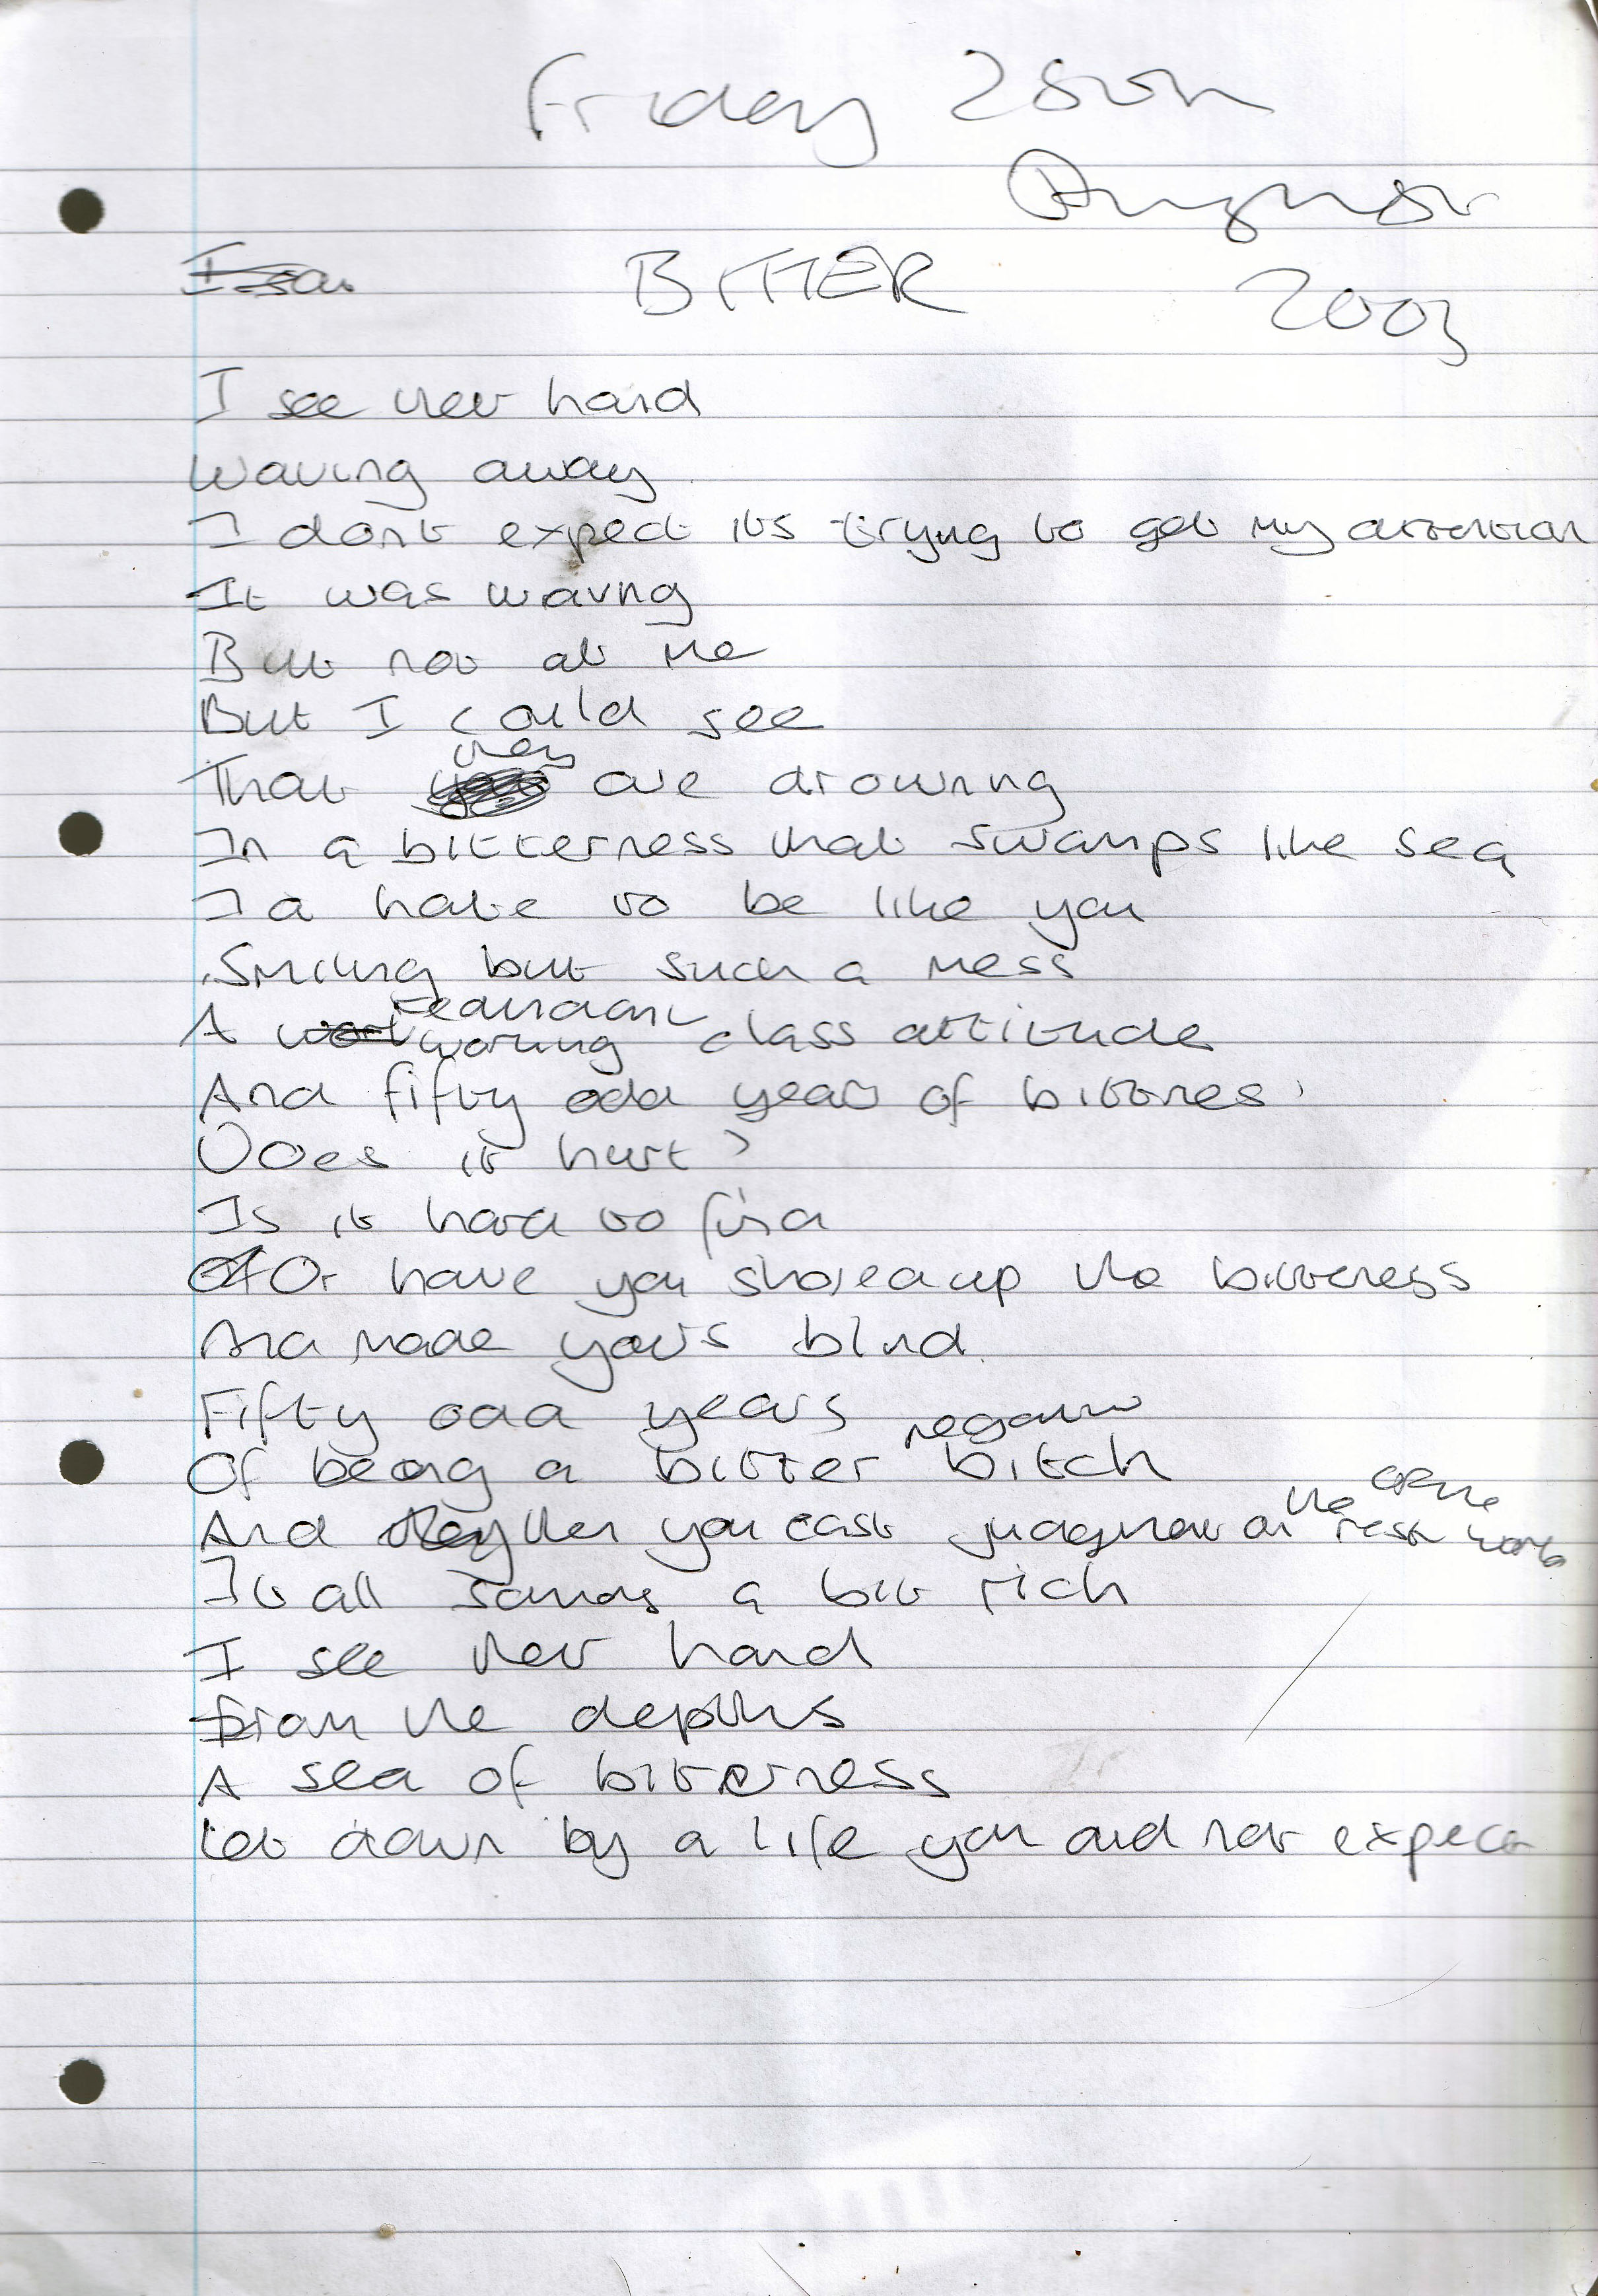 Friday 25th
August
I sa
BITTER
2003
I see their hand
Waving away
I dont expect its trying to get my attention
It was waving
But not at me
But I could see
they
That are drowning
In a bitterness that swamps like sea
I'd hate to be like you
Smiling but such a mess
redundant
A working class attitude
And fifty odd years of bitternes
Does it hurt?
Is it hard to find
Or have you shored up the bitterness
And made yours blind.
Fifty odd years
Of being a bitter bitch
And then you cast judgment on the rest
It all sounds a bit rich
I see their hand
From the depths
A sea of bitterness
Let down by a life you did not expect